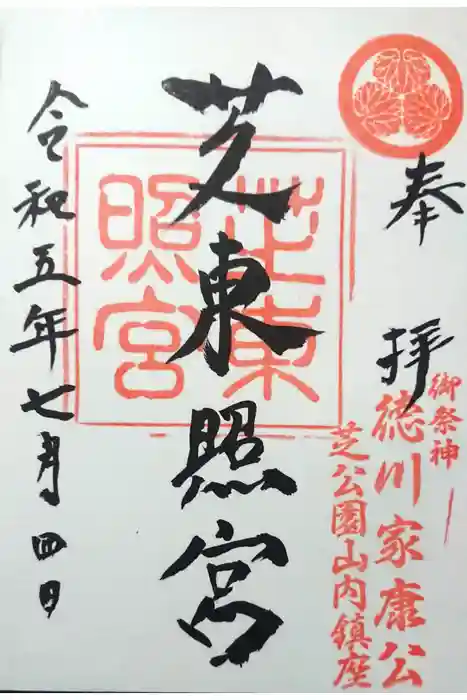 奉拝
御祭神
徳川家康公
芝公園山内鎮座
芝東照宮
芝東照宮
令和五年七月四日